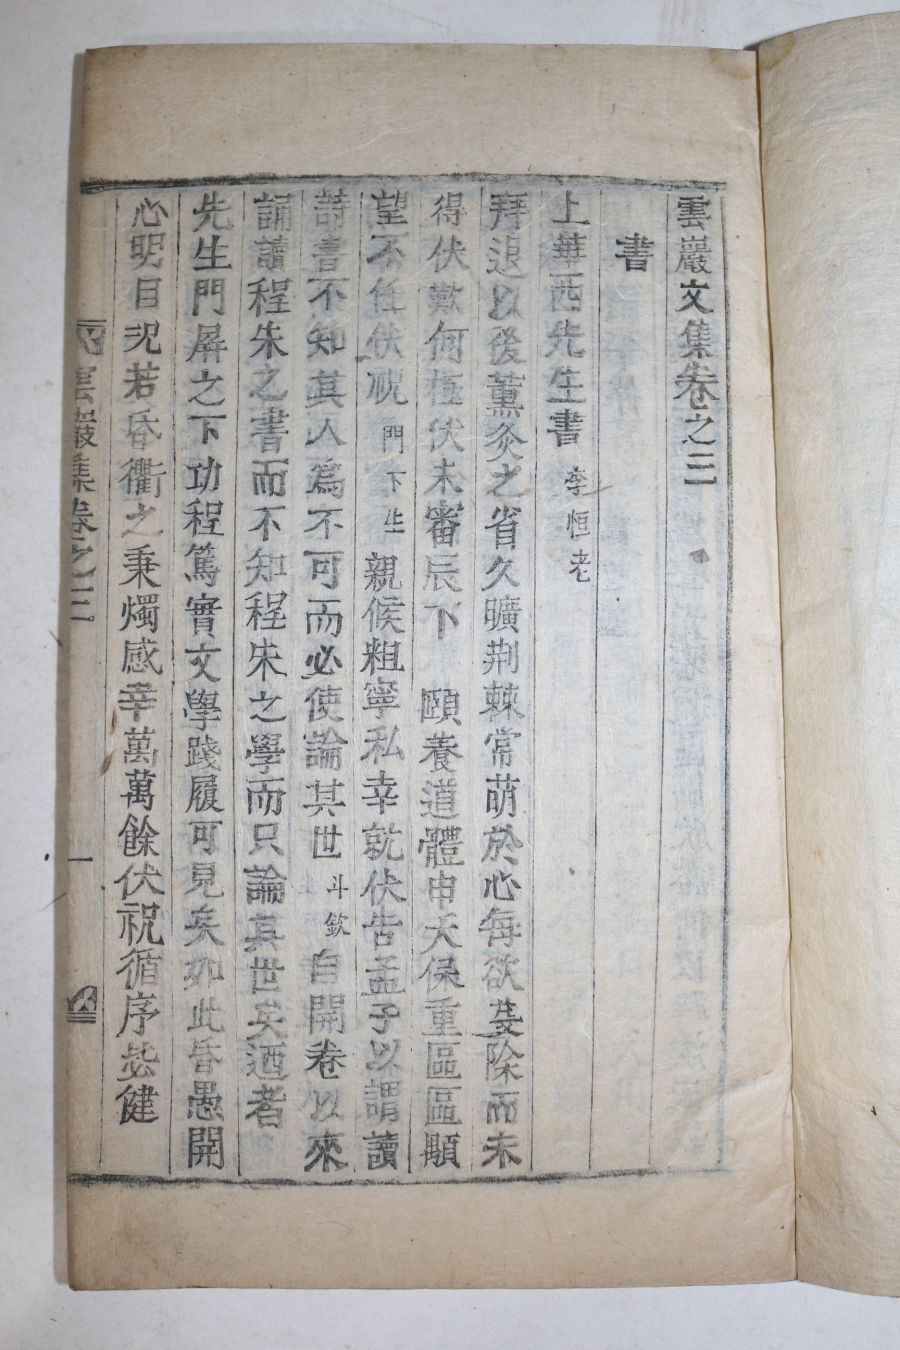 雲巖文集卷之三
書
上華西先生書 李恒老
拜退以後薰炙之省久曠荆棘常萌於心每欲芟除而未
得伏歎何極伏未審辰下 頤養道體申夭保重區區顒
望不任伏祝 門下生 親候粗寧私幸就伏告孟子以謂讀
詩書不知其人爲不可而必使論其世 斗欽 自開卷以來
誦讀程朱之書而不知程朱之學而只論其世矣迺者
先生門屛之下功程篤實文學踐履可見矣如此昏愚開
心明目況若昏衢之秉燭感幸萬萬餘伏祝循序毖健
雲巖集卷之三 一